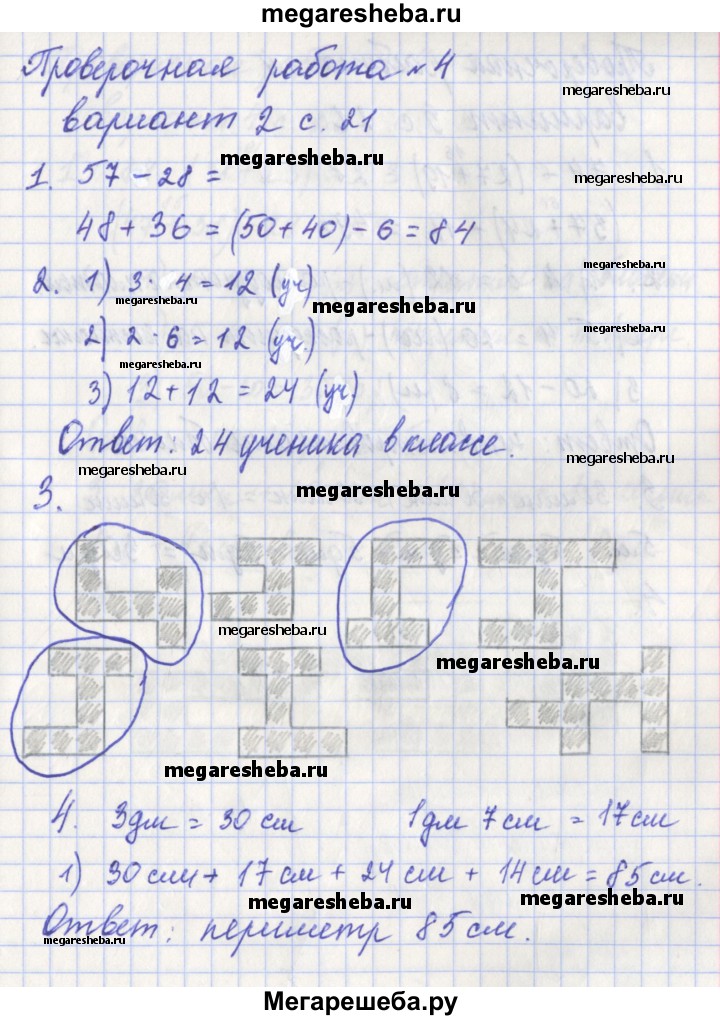 megaresheba.ru
Проверочная работа №4
megaresheba.ru
вариант 2 с. 21
megaresheba.ru
1. 57 - 28 =
megaresheba.ru
48 + 36 = (50 + 40) - 6 = 84
2. 1) 3 · 4 = 12 (уч)
megaresheba.ru
megaresheba.ru
2) 2 · 6 = 12 (уч.)
megaresheba.ru
3) 12 + 12 = 24 (уч)
Ответ: 24 ученика в классе.
megaresheba.ru
megaresheba.ru
3.
megaresheba.ru
megaresheba.ru
megaresheba.ru
megaresheba.ru
4. 3дм = 30 см 1дм 7см = 17см
1) 30см + 17см + 24см + 14см = 85см.
megaresheba.ru
megaresheba.ru
Ответ: периметр 85см.
megaresheba.ru
Мегарешеба.ру